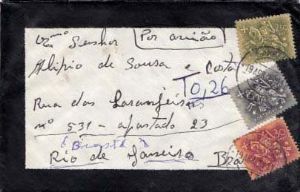 Exmº Senhor
Por avião
Alipio de Sousa e Costa
T 0,26
Rua das Laranjeiras
nº 531 - apartado 23
(Brasil)
Rio de Janeiro